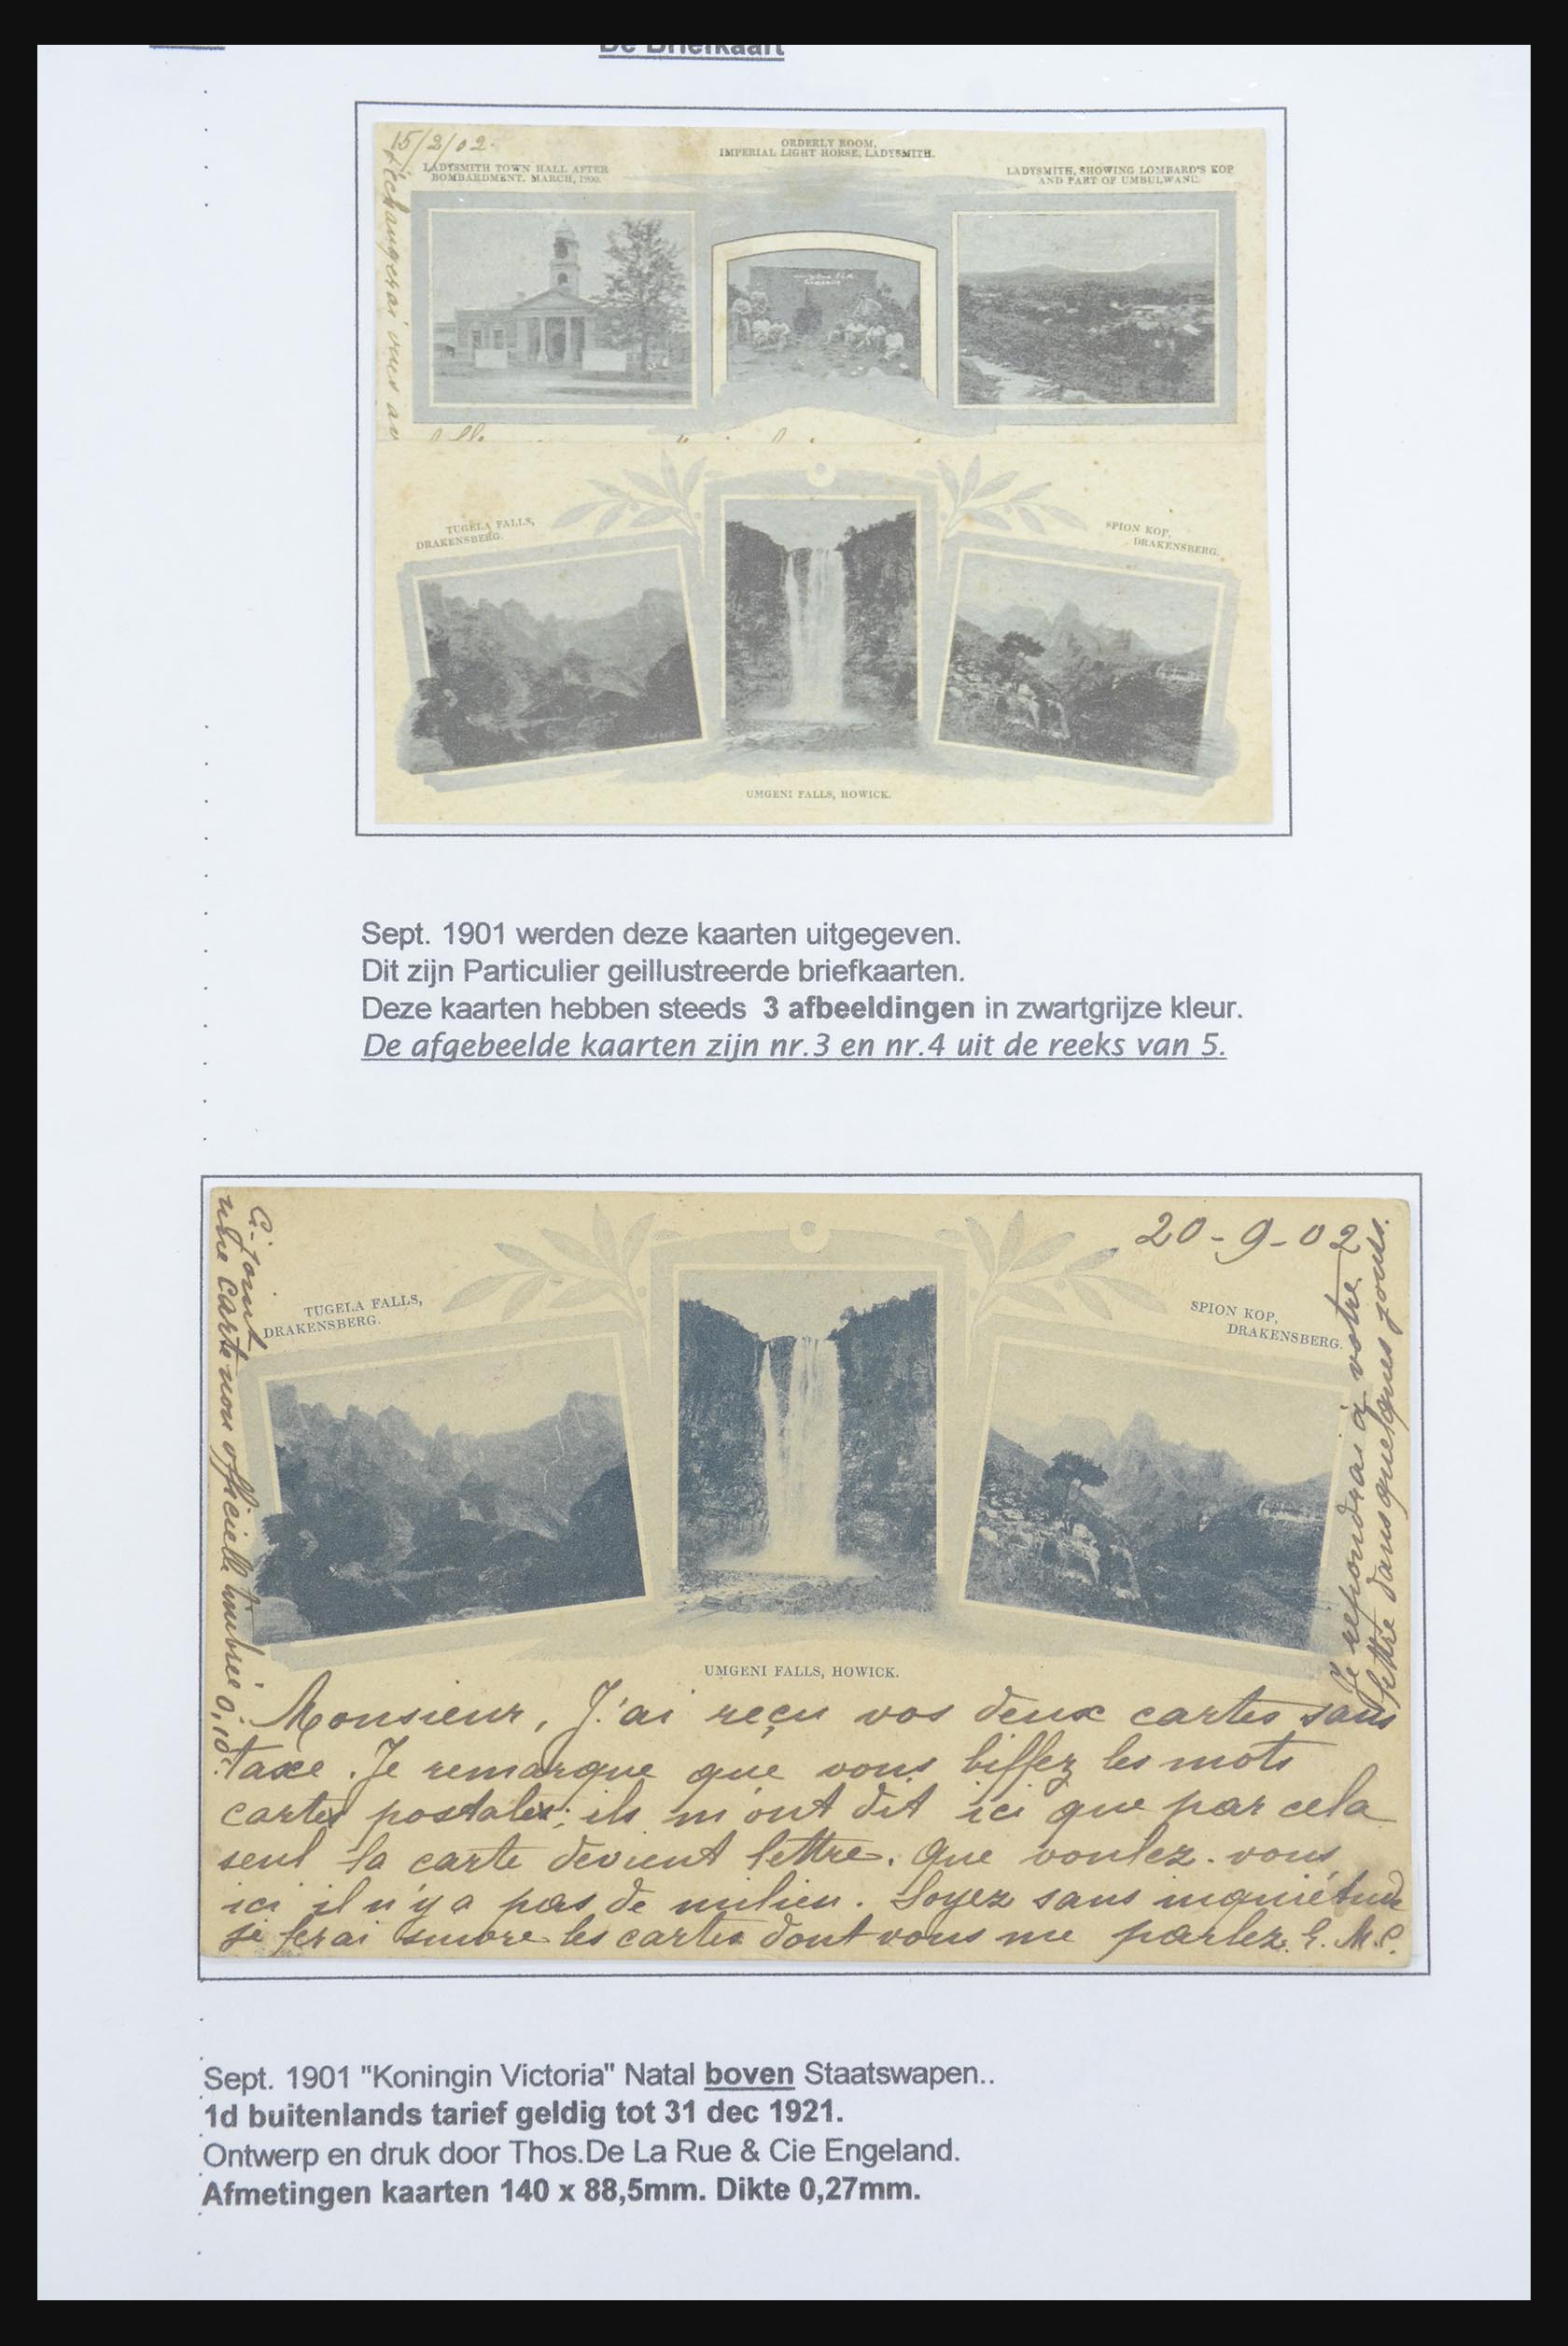 De Briefkaart
15/2/02.
LADYSMITH TOWN HALL AFTER
BOMBARDMENT. MARCH, 1900.
ORDERLY ROOM,
IMPERIAL LIGHT HORSE, LADYSMITH.
LADYSMITH, SHOWING LOMBARD'S KOP
AND PART OF UMBULWANE.
TUGELA FALLS,
DRAKENSBERG.
SPION KOP,
DRAKENSBERG.
UMGENI FALLS, HOWICK.
Sept. 1901 werden deze kaarten uitgegeven.
Dit zijn Particulier geillustreerde briefkaarten.
Deze kaarten hebben steeds 3 afbeeldingen in zwartgrijze kleur.
De afgebeelde kaarten zijn nr.3 en nr.4 uit de reeks van 5.
Ci-joint
une carte non officielle timbrée 0,10
20-9-02
TUGELA FALLS,
DRAKENSBERG.
SPION KOP,
DRAKENSBERG.
UMGENI FALLS, HOWICK.
Je repondrai à votre
lettre dans quelques jours.
Monsieur, J'ai reçu vos deux cartes sans
taxe. Je remarque que vous biffez les mots
cartes postales; ils m'ont dit ici que par cela
seul la carte devient lettre. Que voulez-vous
ici il n'y a pas de milieu. Soyez sans inquiétude
je ferai suivre les cartes dont vous me parlez. E. M. C.
Sept. 1901 "Koningin Victoria" Natal boven Staatswapen..
1d buitenlands tarief geldig tot 31 dec 1921.
Ontwerp en druk door Thos.De La Rue & Cie Engeland.
Afmetingen kaarten 140 x 88,5mm. Dikte 0,27mm.